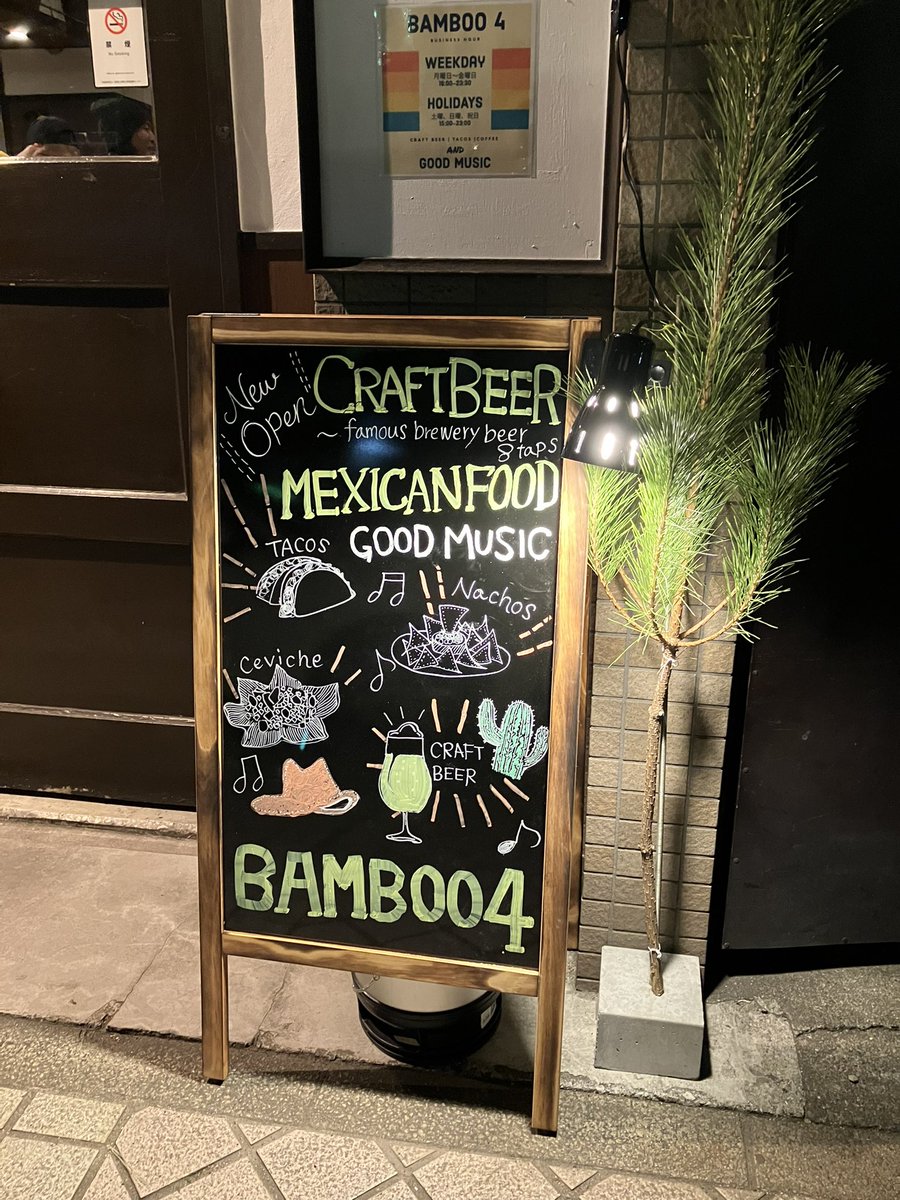 禁煙
No Smoking
BAMBOO 4
BUSINESS HOUR
WEEKDAY
月曜日〜金曜日
HOLIDAYS
土曜、日曜、祝日
15:00-23:00
CRAFT BEER | TACOS | COFFEE
AND
GOOD MUSIC
New Open
CRAFT BEER
~ famous brewery beer
8 taps
MEXICAN FOOD
GOOD MUSIC
TACOS
Nachos
Ceviche
CRAFT
BEER
BAMBOO4